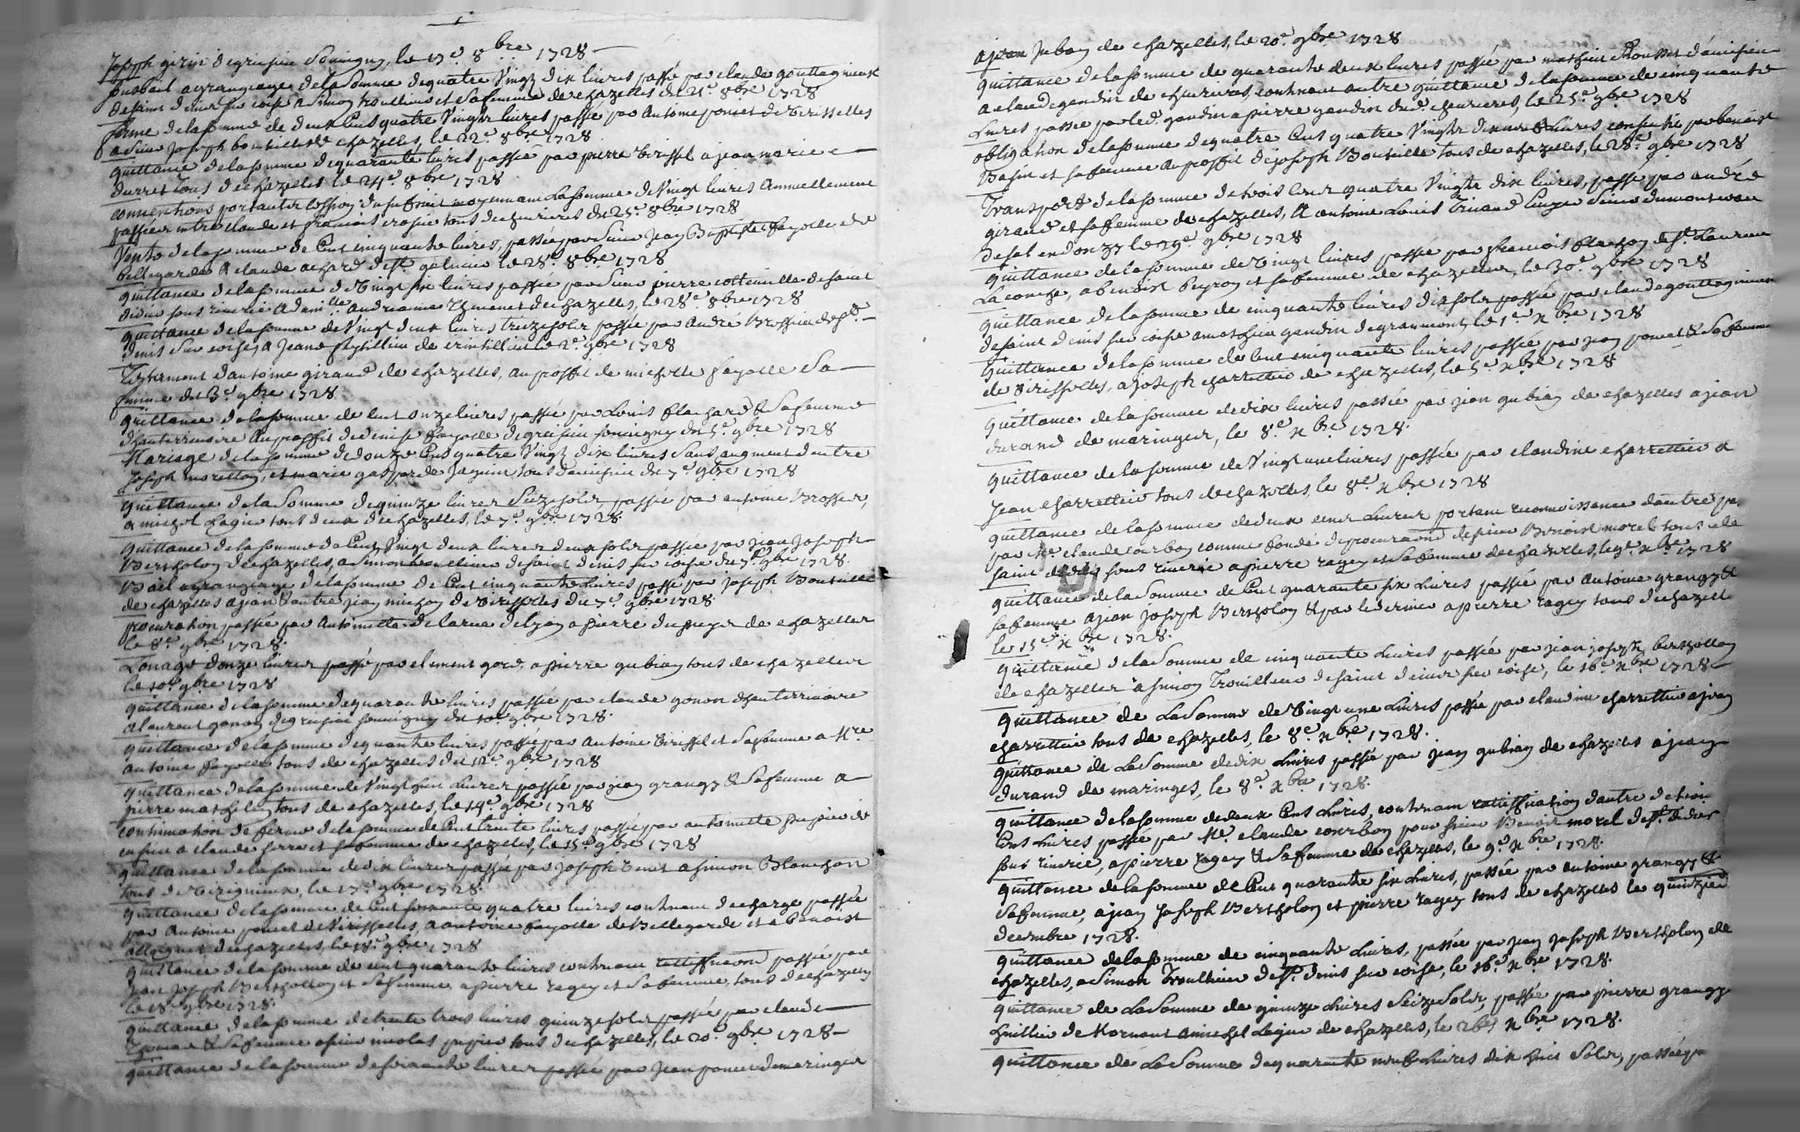 Joseph girin de gresieu Souvigny, le 17e 8bre 1728
de la Somme de quatre Vingt dix livres passé par claude gouttagnieux
de saint denis sur coise a Simon troullieu et Sa femme de chazelles du 21e 8bre 1728
ferme de la somme de deux Cent quatre Vingts livres passée par Antoine poncet de Virisselles
a Sieur Joseph de chazelles, le 22e 8bre 1728
quittance de la somme de quarante livres passée par pierre Virissel a jean marie
durret tous de chazelles le 24e 8bre 1728
conventions portant cession moyenant la Somme de Vingt livres annuellement
passées entre claude et françois crozier tous de chevrieres du 25e 8bre 1728
Vente de la somme de Cent cinquante livres, passée par Sieur Jean Baptiste fayolle de
bellegarde a claude achard de St galmier le 28e 8bre 1728
quittance de la somme de Vingt six livres passée par Sieur pierre de saint
didier sous riverie a damlle andreanne de chazelles, le 28e 8bre 1728
quittance de la somme de Vingt deux livres treize sols passée par André Brossieu de St
denis Sur coise, a Jeanne de le 2e 9bre 1728
Testament d'antoine giraud de chazelles, au proffit de michelle fayolle Sa
femme du 3e 9bre 1728
quittance de la somme de Cent onze livres passée par Louis Blachard & Sa femme
d'hauterivoire au proffit de denise fayolle de gresieu souvigny du 5e 9bre 1728
Mariage de la somme de douze Cent quatre Vingt dix livres Sans augment d'entre
Joseph moretton, et marie gasparde Jaquin tous d'anisieu du 7e 9bre 1728
quittance de la Somme de quinze livres Seize sols passée par antoine Brosser,
a michel Lagie tous deux de chazelles, le 7e 9bre 1728
quittance de la somme de Cent Vingt deux livres deux sols passée par jean Joseph
Bertholon de chazelles, a Simon trouillieu de saint denis sur coise du 7e 9bre 1728
Bail a grangeage de la somme de Cent cinquante livres passé par joseph Bouteille
de chazelles a jean & autre jean michon de Virisselles du 7e 9bre 1728
procuration passée par Antoinette delarue de lyon a pierre dupuys de chazelles
le 8e 9bre 1728
Louage d'onze livres passé par clement a pierre gubian tous de chazelles
le 10e 9bre 1728
quittance de la somme de quarante livres passée par claude gonon d'hauterivoire
a laurent gonon de gresieu souvigny du 10e 9bre 1728
quittance de la somme de quarante livres passé par Antoine Virissel et Sa femme a Mre
antoine fayolle tous de chazelles du 12e 9bre 1728
quittance de la somme de Vingt livres passée par jean grangy & Sa femme a
pierre tous de chazelles, le 14e 9bre 1728
continuation de ferme de la somme de Cent trente livres passée par antoinette
a claude ferra et sa femme de chazelles, le 15e 9bre 1728
quittance de la somme de dix livres passée par Joseph Venet a Simon Blanchon
tous de Virigneux, le 17e 9bre 1728
quittance de la somme de Cent soixante quatre livres contenant decharge passée
par Antoine poncet de Virisselles, a antoine fayolle de Bellegarde et a Benoist
de chazelles, le 18e 9bre 1728
quittance de la somme de cent quarante livres contenant rattiffication passée par
jean Joseph Bertholon et Sa femme, a pierre ragey et Sa femme, tous de chazelles
le 18e 9bre 1728
quittance de la somme de trente trois livres quinze sols passée par claude
Thomas & Sa femme a sieur nicolas pupier tous de chazelles, le 20e 9bre 1728
quittance de la somme de soixante livres passée par Jean poncet de maringes
a jean Jubon de chazelles, le 20e 9bre 1728
quittance de la somme de quarante deux livres passée par mathieu Rousset d'anisieu
a claude gendin de chevrieres, contenant autre quittance de la somme de cinquante
Livres passée par led. gendin a pierre gendin dud. chevrieres, le 25e 9bre 1728
obligation de la somme de quatre Cent quatre Vingts dix neuf Livres consentie par benoist
Basin et sa femme au proffit de joseph Bouteille tous de chazelles, le 28e 9bre 1728
Transport de la somme de trois Cent quatre Vingts dix livres, passé par andré
giraud et sa femme de chazelles, a antoine Louis
en donzy le 29e 9bre 1728
quittance de la somme de Vingt livres passée par françois Blachon de St Laurent
La conche, a benoist peyron et sa femme de chazelles, le 30e 9bre 1728
quittance de la somme de cinquante livres dix sols passée par claude gouttagnieux
de saint denis sur coise a mathieu gendin de grammont, le 1er xbre 1728
quittance de la somme de Cent cinquante livres passée par jean poncet & Sa femme
de Virisselles, a Joseph charrettier de chazelles, le 5e xbre 1728
quittance de la somme de dix livres passée par jean gubian de chazelles a jean
durand de maringes, le 8e xbre 1728.
quittance de la somme de Vingt une livres passée par claudine charrettier a
Jean charrettier tous de chazelles, le 8e xbre 1728
quittance de la somme de deux cent Livres portant reconnoissance d'autre
par Me claude courbon comme fondé de procuration de sieur Benoist morel tous de
saint didier sous riverie a pierre ragey et Sa femme de chazelles, le 9e xbre 1728
quittance de la Somme de Cent quarante six Livres passée par Antoine grangy &
sa femme a jean Joseph Bertholon & par le dernier a pierre ragey tous de chazelles
le 15e xbre 1728.
quittance de la Somme de cinquante Livres passée par jean joseph bertholon
de chazelles a Simon Trouillieu de saint denis sur coise, le 16e xbre 1728
quittance de La Somme de Vingt une Livres passée par claudine charrettier a jean
charrettier tous de chazelles, le 8e xbre 1728.
quittance de La Somme de dix Livres passée par jean gubian de chazelles a jean
durand de maringes, le 8e xbre 1728.
quittance de la somme de deux Cent Livres, contenant rattiffication d'autre de
Cent Livres passée par Me claude courbon pour sieur Benoist morel de St didier
sous riverie, a pierre ragey & Sa femme de chazelles, le 9e xbre 1728.
quittance de la somme de Cent quarante six Livres, passée par antoine grangy &
Sa femme, a jean Joseph Bertholon et pierre ragey tous de chazelles le quinzieme
decembre 1728.
quittance de la somme de cinquante Livres, passée par jean Joseph Bertholon de
chazelles, a Simon Trouillieu de St denis sur coise, le 16e xbre 1728.
quittance de La Somme de quinze Livres Seize Sols, passée par pierre grangy
huillier de Mornant a michel Lagie de chazelles, le xbre 1728.
quittance de La Somme de quarante neuf Livres dix huit Sols, passée